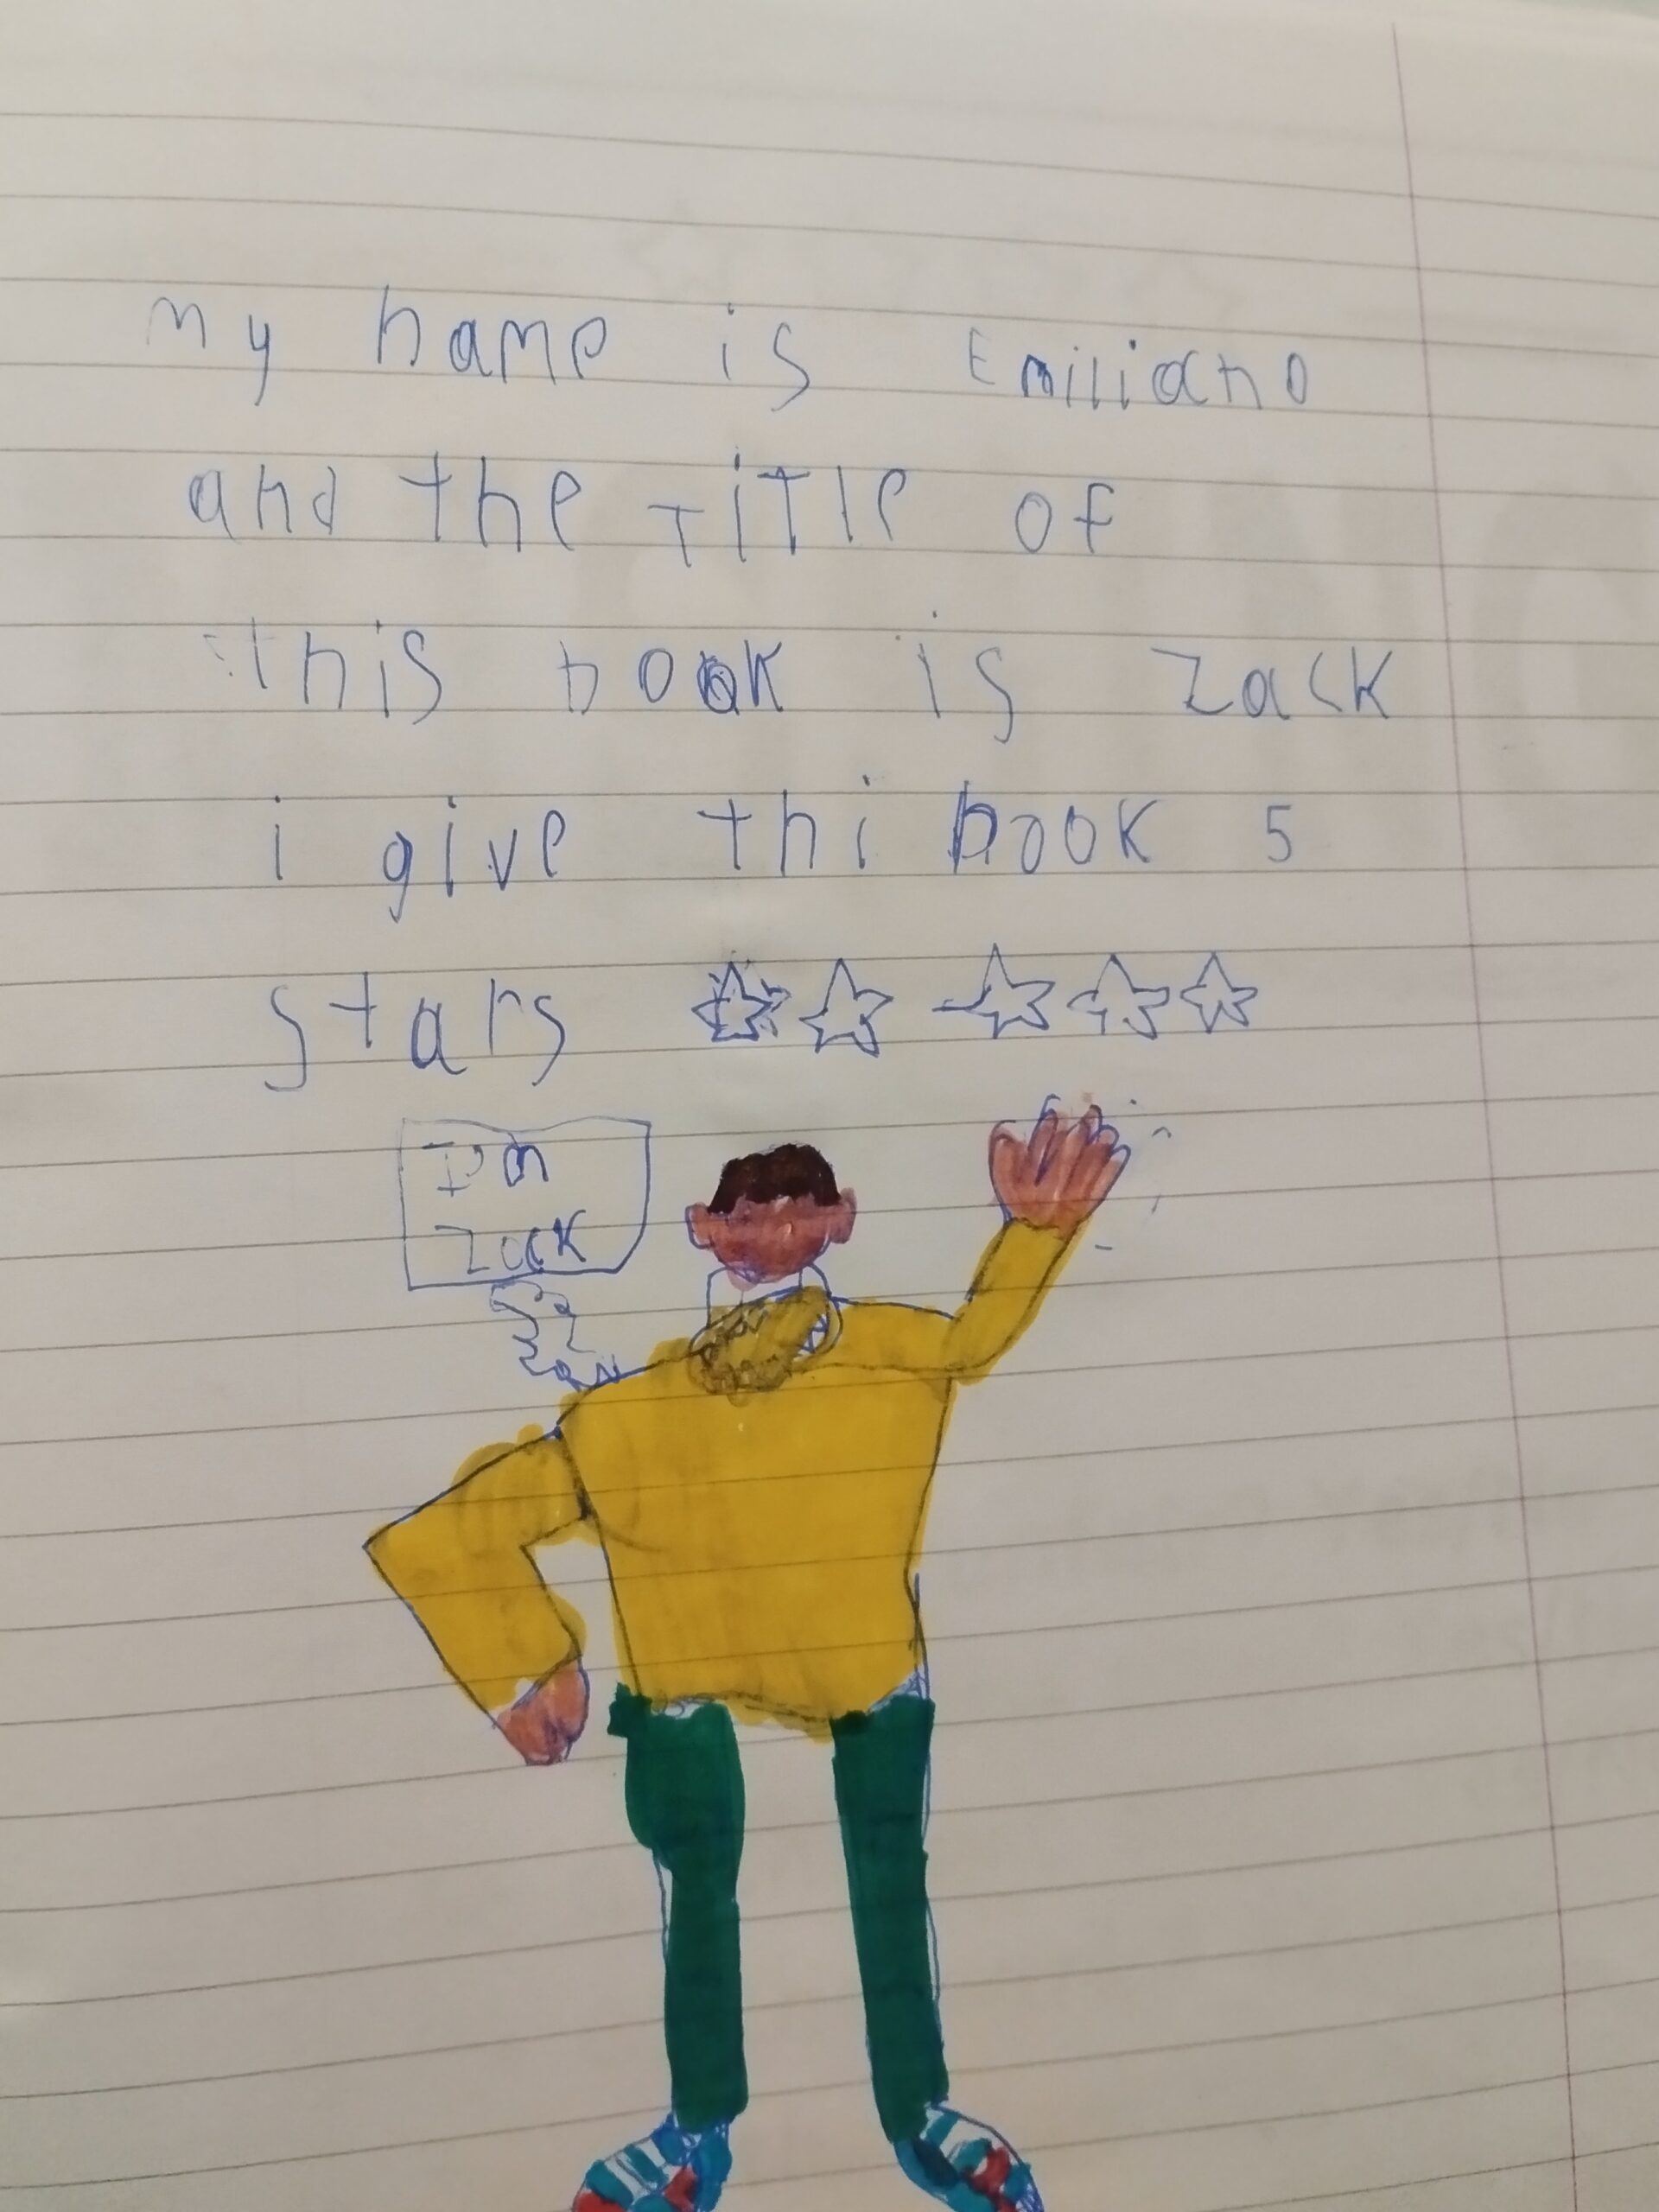 my name is Emiliano
and the TiTle of
this book is Zack
i give thi book 5
stars
I'm
Zack